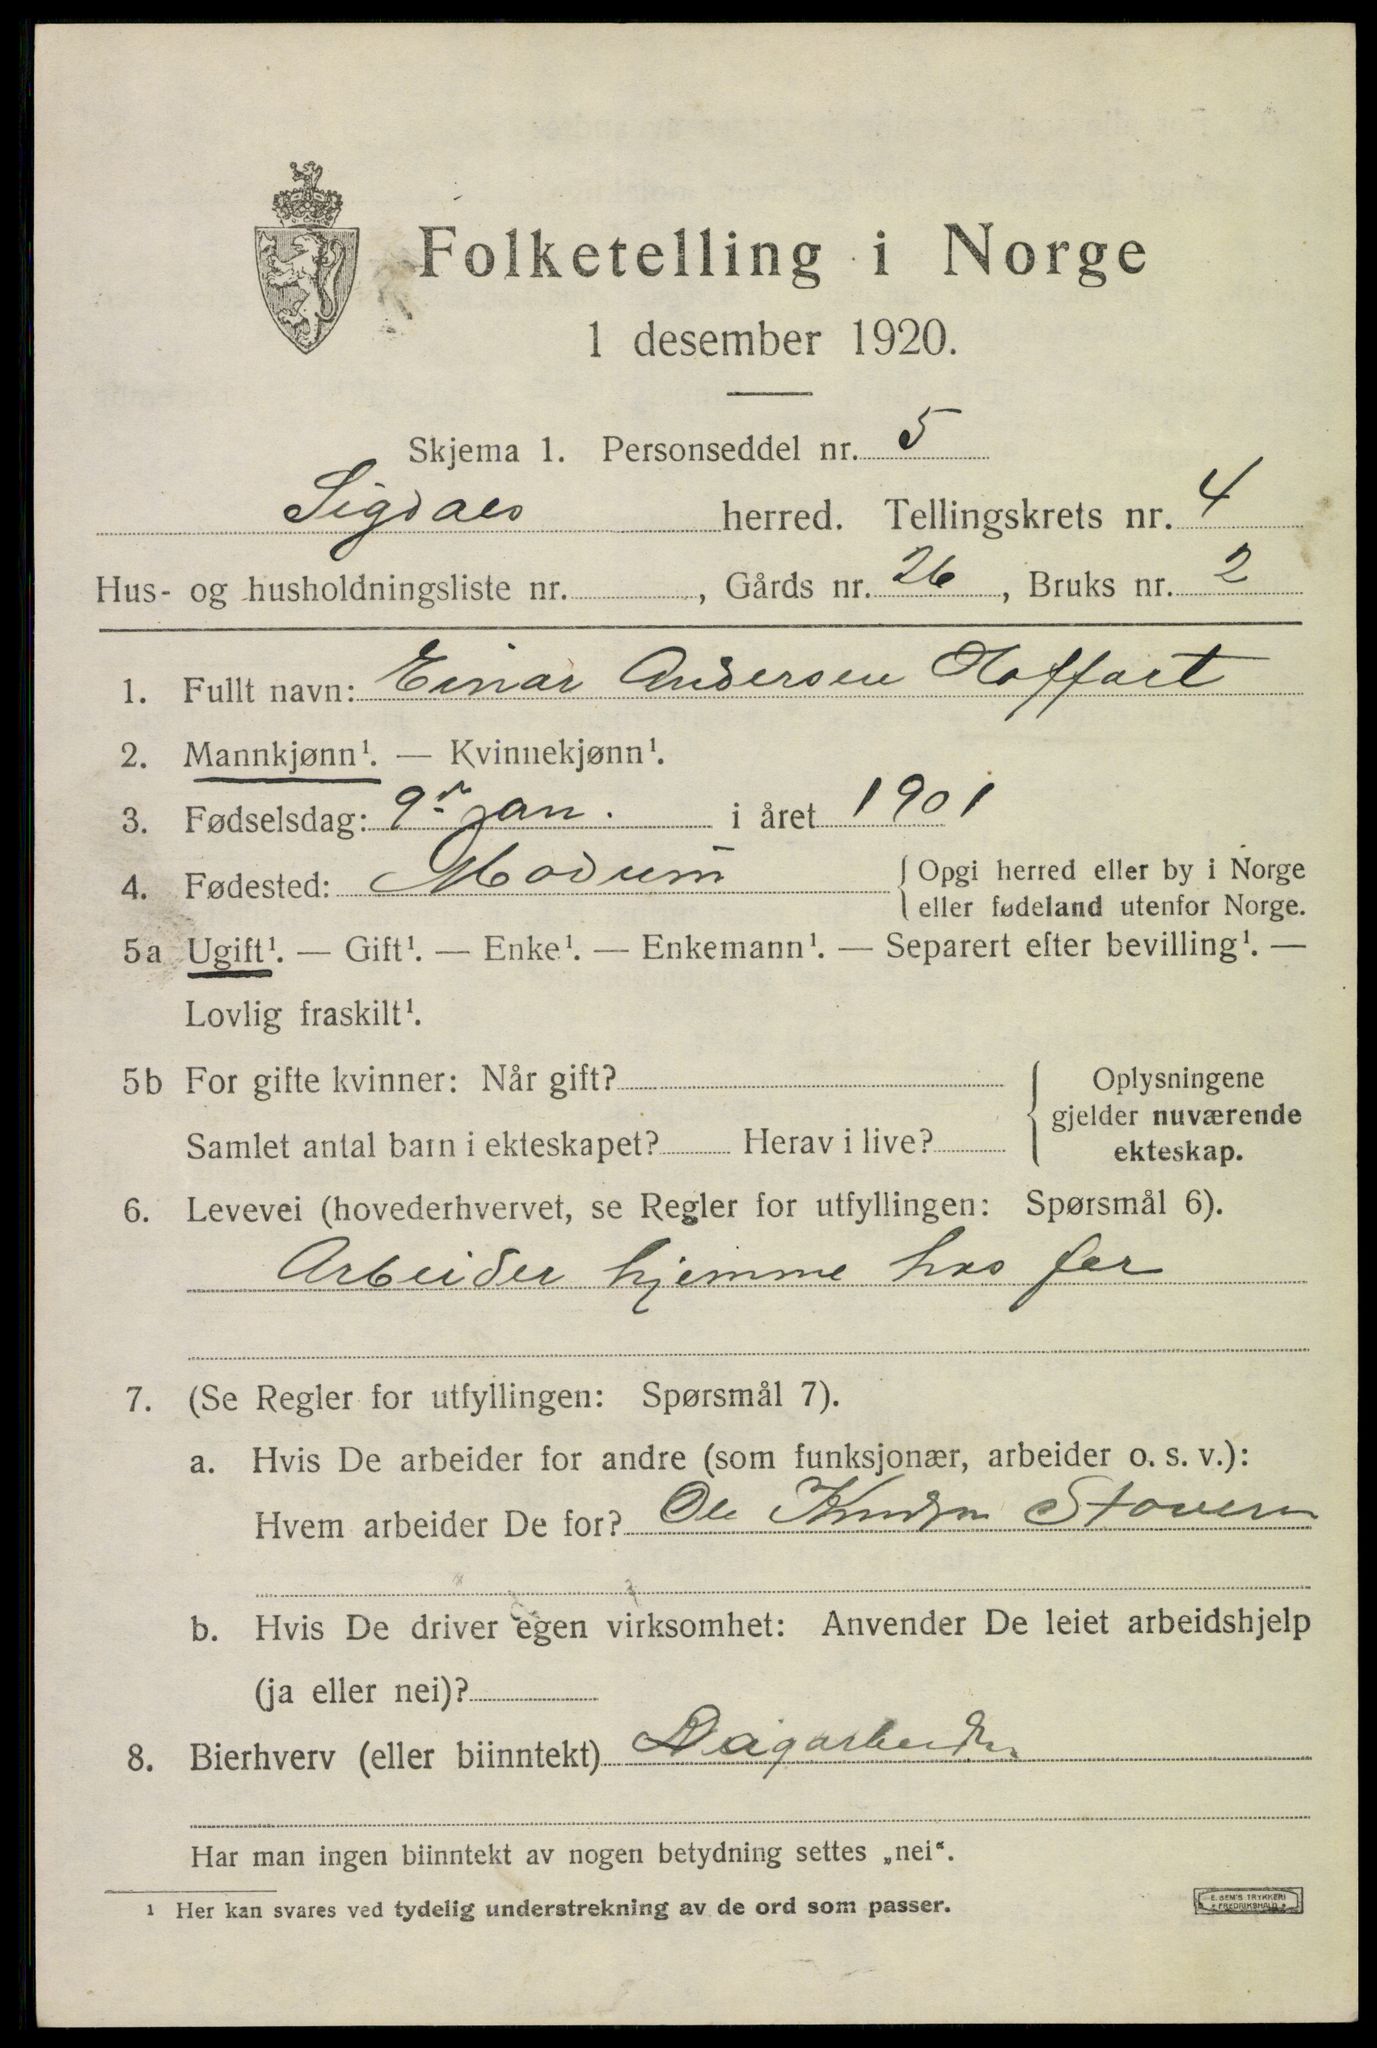 Folketelling i Norge
1 desember 1920.
Skjema 1. Personseddel nr. 5
Sigdals herred. Tellingskrets nr. 4
Hus- og husholdningsliste nr. , Gårds nr. 26, Bruks nr. 2
1. Fullt navn: Einar Andersen Hoffart
2. Mannkjønn¹. — Kvinnekjønn¹.
3. Fødselsdag: 9de jan. i året 1901
4. Fødested: Modum { Opgi herred eller by i Norge
eller fødeland utenfor Norge.
5a Ugift¹. — Gift¹. — Enke¹. — Enkemann¹. — Separert efter bevilling¹. —
Lovlig fraskilt¹.
5b For gifte kvinner: Når gift? { Oplysningene
gjelder nuværende
Samlet antal barn i ekteskapet? Herav i live? ekteskap.
6. Levevei (hovederhvervet, se Regler for utfyllingen: Spørsmål 6).
Arbeider hjemme hos far
7. (Se Regler for utfyllingen: Spørsmål 7).
a. Hvis De arbeider for andre (som funksjonær, arbeider o. s. v.):
Hvem arbeider De for? Ole Knudsen Stovern
b. Hvis De driver egen virksomhet: Anvender De leiet arbeidshjelp
(ja eller nei)?
8. Bierhverv (eller biinntekt) Dagarbeider
Har man ingen biinntekt av nogen betydning settes „nei“.
¹ Her kan svares ved tydelig understrekning av de ord som passer.
E. SEM'S TRYKKERI
FREDRIKSHALD